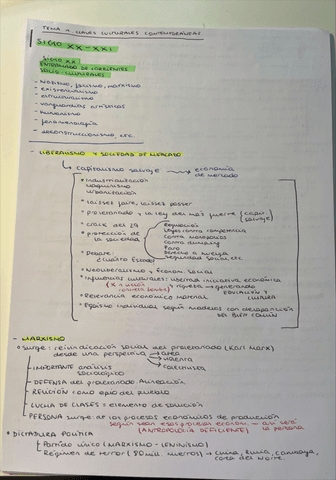 TEMA 1. CLAVES CULTURALES CONTEMPORÁNEAS
SIGLO XX-XXI
SIGLO XX
ENTRAMADO DE CORRIENTES
SOCIO-CULTURALES
- nazismo, fascismo, marxismo
- existencialismo
- estructuralismo
- vanguardias artísticas
- humanismo
- fenomenología
- deconstruccionismo, etc.
- LIBERALISMO Y SOCIEDAD DE MERCADO
capitalismo salvaje → economía
de mercado
• industrialización
maquinismo
urbanización
• laissez faire, laissez passer
• proletariado y la ley del más fuerte (capit.
salvaje)
• crack del 29
• protección de
la sociedad
Regulación
leyes contra competencia
contra monopolios
contra dumping
Paro
Derecho a huelga
Seguridad social, etc.
• Neoliberalismo y Econom. social
• Influencias culturales: libertad iniciativa económica
riqueza → generando
EDUCACIÓN Y
CULTURA
• Relevancia económica material
• Egoísmo individual según modelos con
DEL BIEN COMÚN
- MARXISMO
• Surge: reivindicación social del proletariado (Karl Marx)
desde una perspectiva → atea
→ materia
→ colectivista
- IMPORTANTE ANÁLISIS
SOCIOLÓGICO
- DEFENSA del proletariado. Alineación
- RELIGIÓN como opio del pueblo
- LUCHA DE CLASES: elemento de solución
- PERSONA surge de los procesos económicos de producción
según sean esos procesos econom. → así será
(ANTROPOLOGÍA DEFICIENTE) la persona
• DICTADURA POLÍTICA
Partido único (MARXISMO-LENINISMO)
Régimen de terror (80 mill. muertos) → China, Rusia, Camboya,
Corea del Norte.